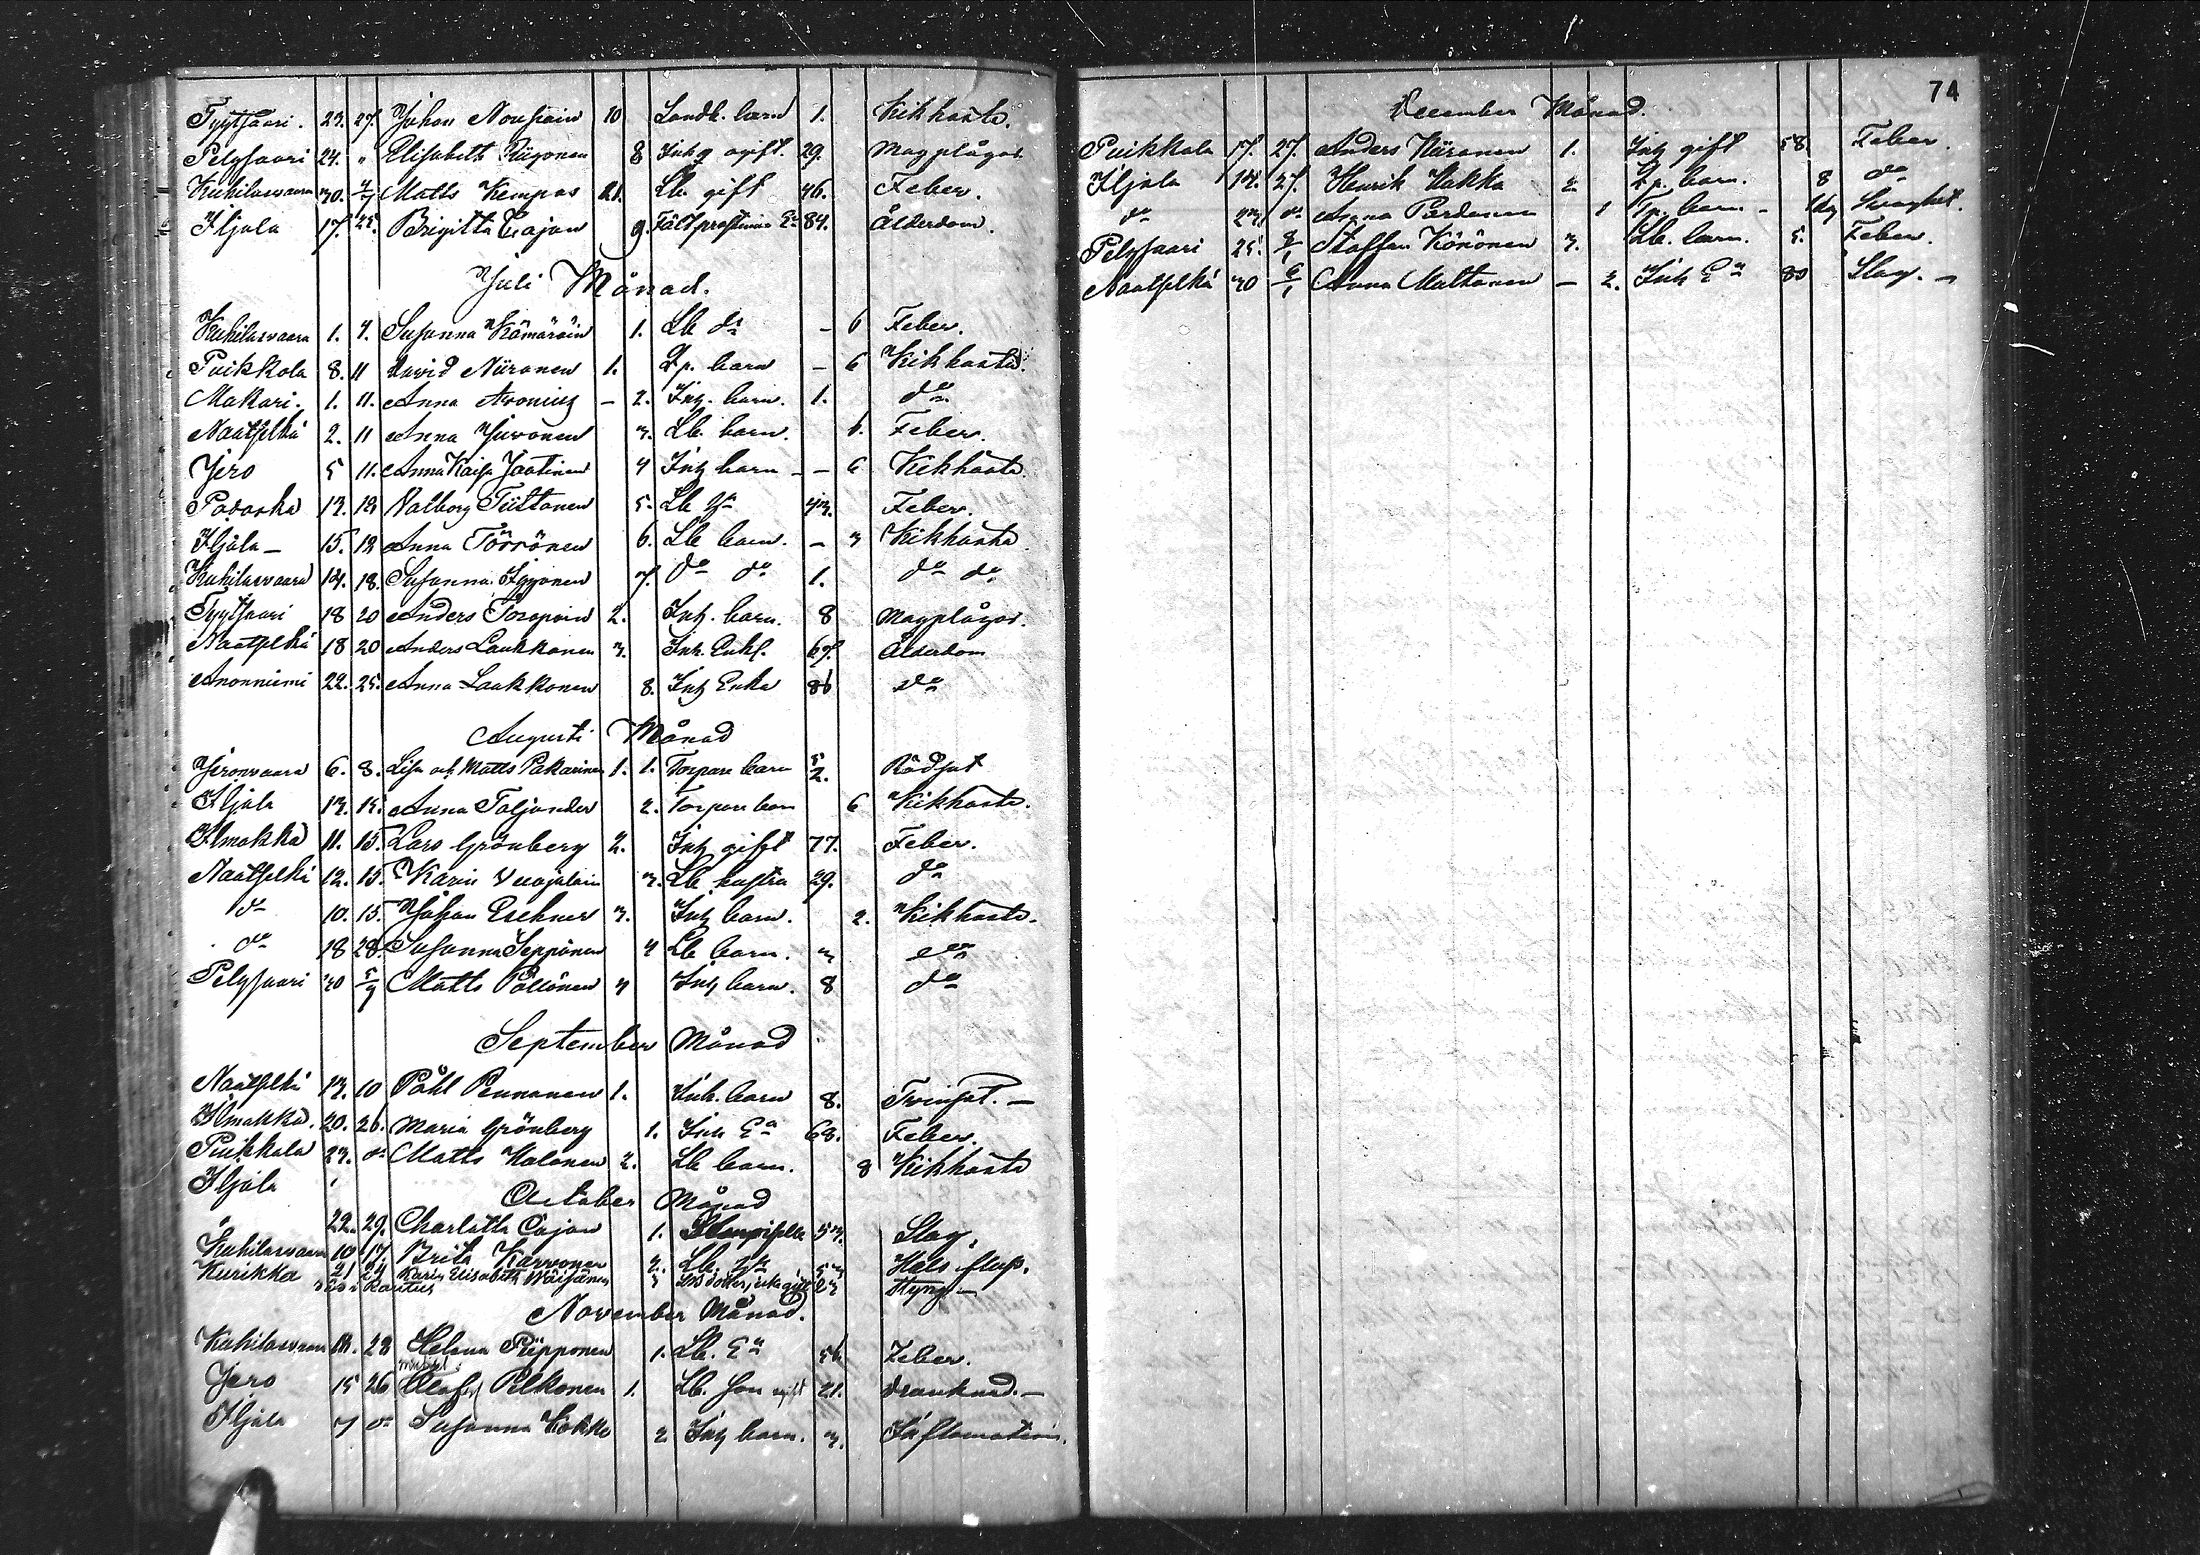 Tyytjaari. 23. 27. Johan Nousiain 10 Landb. barn 1. Kikhosta.
Pelysaari 24. " Elisabeth Riigonen 8 Inh. ogift. 29. Magplågor.
Kuhilasvaara 30. 4/7 Matts Kempas 21. Lb. gift 46. Feber.
Iljala 17. 25. Brigitta Cajan 9. Fältprostinna Ea 84. Ålderdom.
Juli Månad.
Kuhilasvaara 1. 4. Susanna Kämäräin 1. Lb do – 6 Feber.
Puikkola 8. 11 David Niiranen 1. Tp. barn – 6 Kikhosta.
Makari. 1. 11. Anna Aronius – 2. Inh. barn. 1. do
Naatselkä 2. 11 Anna Juvonen 3. Lb. barn. 6. Feber.
Jero 5 11. Anna Kaisa Jaatinen 4 Inh barn – – 6 Kikhosta.
Padaska 13. 19 Valborg Tiittanen 5. Lb 43. Feber.
Iljala – 15. 19 Anna Törrönen 6. Lb barn. – 3 Kikhosta
Kuhilasvaara 14. 18. Susanna 7. do do 1. do do
Tyytjaari 18 20 Anders Toropain 2. Inh. barn. 8 Magplågor.
Naatselkä 18 20 Anders Laukkanen 3. Inh. Enkl. 67. Ålderdom
Anonniemi 22. 25. Anna Laukkonen 8. Inh Enka 86 do
Augusti Månad
Jeronvaara 6. 8. Lisa och Matts Pakarinen 1. 1. Torpare barn 5/2. Rödsot
Iljala 13. 15. Anna Taljander 2. Torpare barn 6 Kikhosta.
Ilmakka 11. 15. Lars Grönberg 2. Inh gift 77. Feber.
Naatselkä 12. 15. Karin Vuojalain 3. Lb hustru 29. do
do 10. 15. Johan Eschner 3. Inh barn. 2. Kikhosta.
do 18 28. Susanna Seppänen 4 Lb barn. 3 do
Pelysaari 30 5/9 Matts Pöllönen 4 Inh barn. 8 do
September Månad
Naatselkä 13. 10 Påhl Pennanen 1. Inh. barn 8. Tvinsot. –
Ilmakka. 20. 26. Maria Grönberg 1. Inh Ea 68. Feber.
Puikkola 23. do Matts Halonen 2. Lb barn. 8 Kikhosta
Iljala
October Månad
" 22. 29. Charlotta Cajan 1. 53. Slag.
Kuhilasvaara 10 17. Brita Karvonen 2. Lb. Hals fluss.
Kurikka 21 24 Karin Elisabeth Väisänen 3 Lb dotter, icke gift 23 Styng –
Rautus
November Månad.
Kuhilasvaara 18. 28 Helena Piipponen 1. Lb. Ea 56 Feber.
Jero 15 26 Olof Pelkonen 1. Lb. son ogift 21. Drunknad. –
Iljala 7 do Susanna Kokko 2 Inh barn. 3. Inflamation.
74
December Månad.
Puikkola 17. 27. Anders Niiranen 1. Inh gift 58. Feber.
Iljala 14. 27. Henrik Hakka 2 Tp. barn. 8 do
do 23. do Anna Pardanen 1 Tp. barn – 1 dag Svaghet.
Pelysaari 25. 2/1 Staffan Könönen 3. Lb. barn. 5. Feber.
Naatselkä 30 6/1 Anna Maltanen – 2. Inh Ea 80 Slag. –